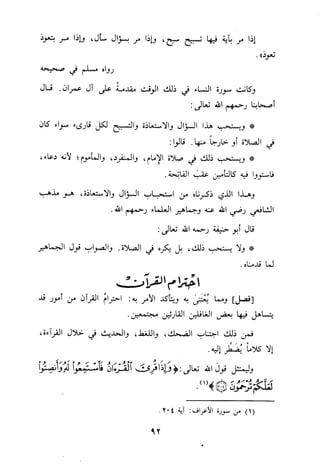 إذا مر بآية فيها تسبيح سبح، وإذا مر بسؤال سأل، وإذا مر بتعوذ
تعوذ».
رواه مسلم في صحيحه
وكانت سورة النساء في ذلك الوقت مقدمة على آل عمران. قال
أصحابنا رحمهم الله تعالى:
* ويستحب هذا السؤال والاستعاذة والتسبيح لكل قارىء سواء كان
في الصلاة أو خارجاً منها. قالوا:
* ويستحب ذلك في صلاة الإمام، والمنفرد، والمأموم؛ لأنه دعاء،
فاستووا فيه كالتأمين عقب الفاتحة.
وهذا الذي ذكرناه من استحباب السؤال والاستعاذة، هو مذهب
الشافعي رضي الله عنه وجماهير العلماء رحمهم الله.
قال أبو حنيفة رحمه الله تعالى:
* ولا يستحب ذلك، بل يكره في الصلاة. والصواب قول الجماهير
لما قدمناه.
احترام القرآن
[فصل] ومما يُعتنى به ويتأكد الأمر به: احترامُ القرآن من أمور قد
يتساهل فيها بعض الغافلين القارئين مجتمعين.
فمن ذلك اجتناب الضحك، واللغط، والحديث في خلال القراءة،
إلا كلامًا يُضطر إليه.
وليمتثل قول الله تعالى: ﴿وَإِذَا قُرِئَ الْقُرْآنُ فَاسْتَمِعُوا لَهُ وَأَنصِتُوا
لَعَلَّكُمْ تُرْحَمُونَ﴾(١).
(١) من سورة الأعراف: آية ٢٠٤.
٩٢